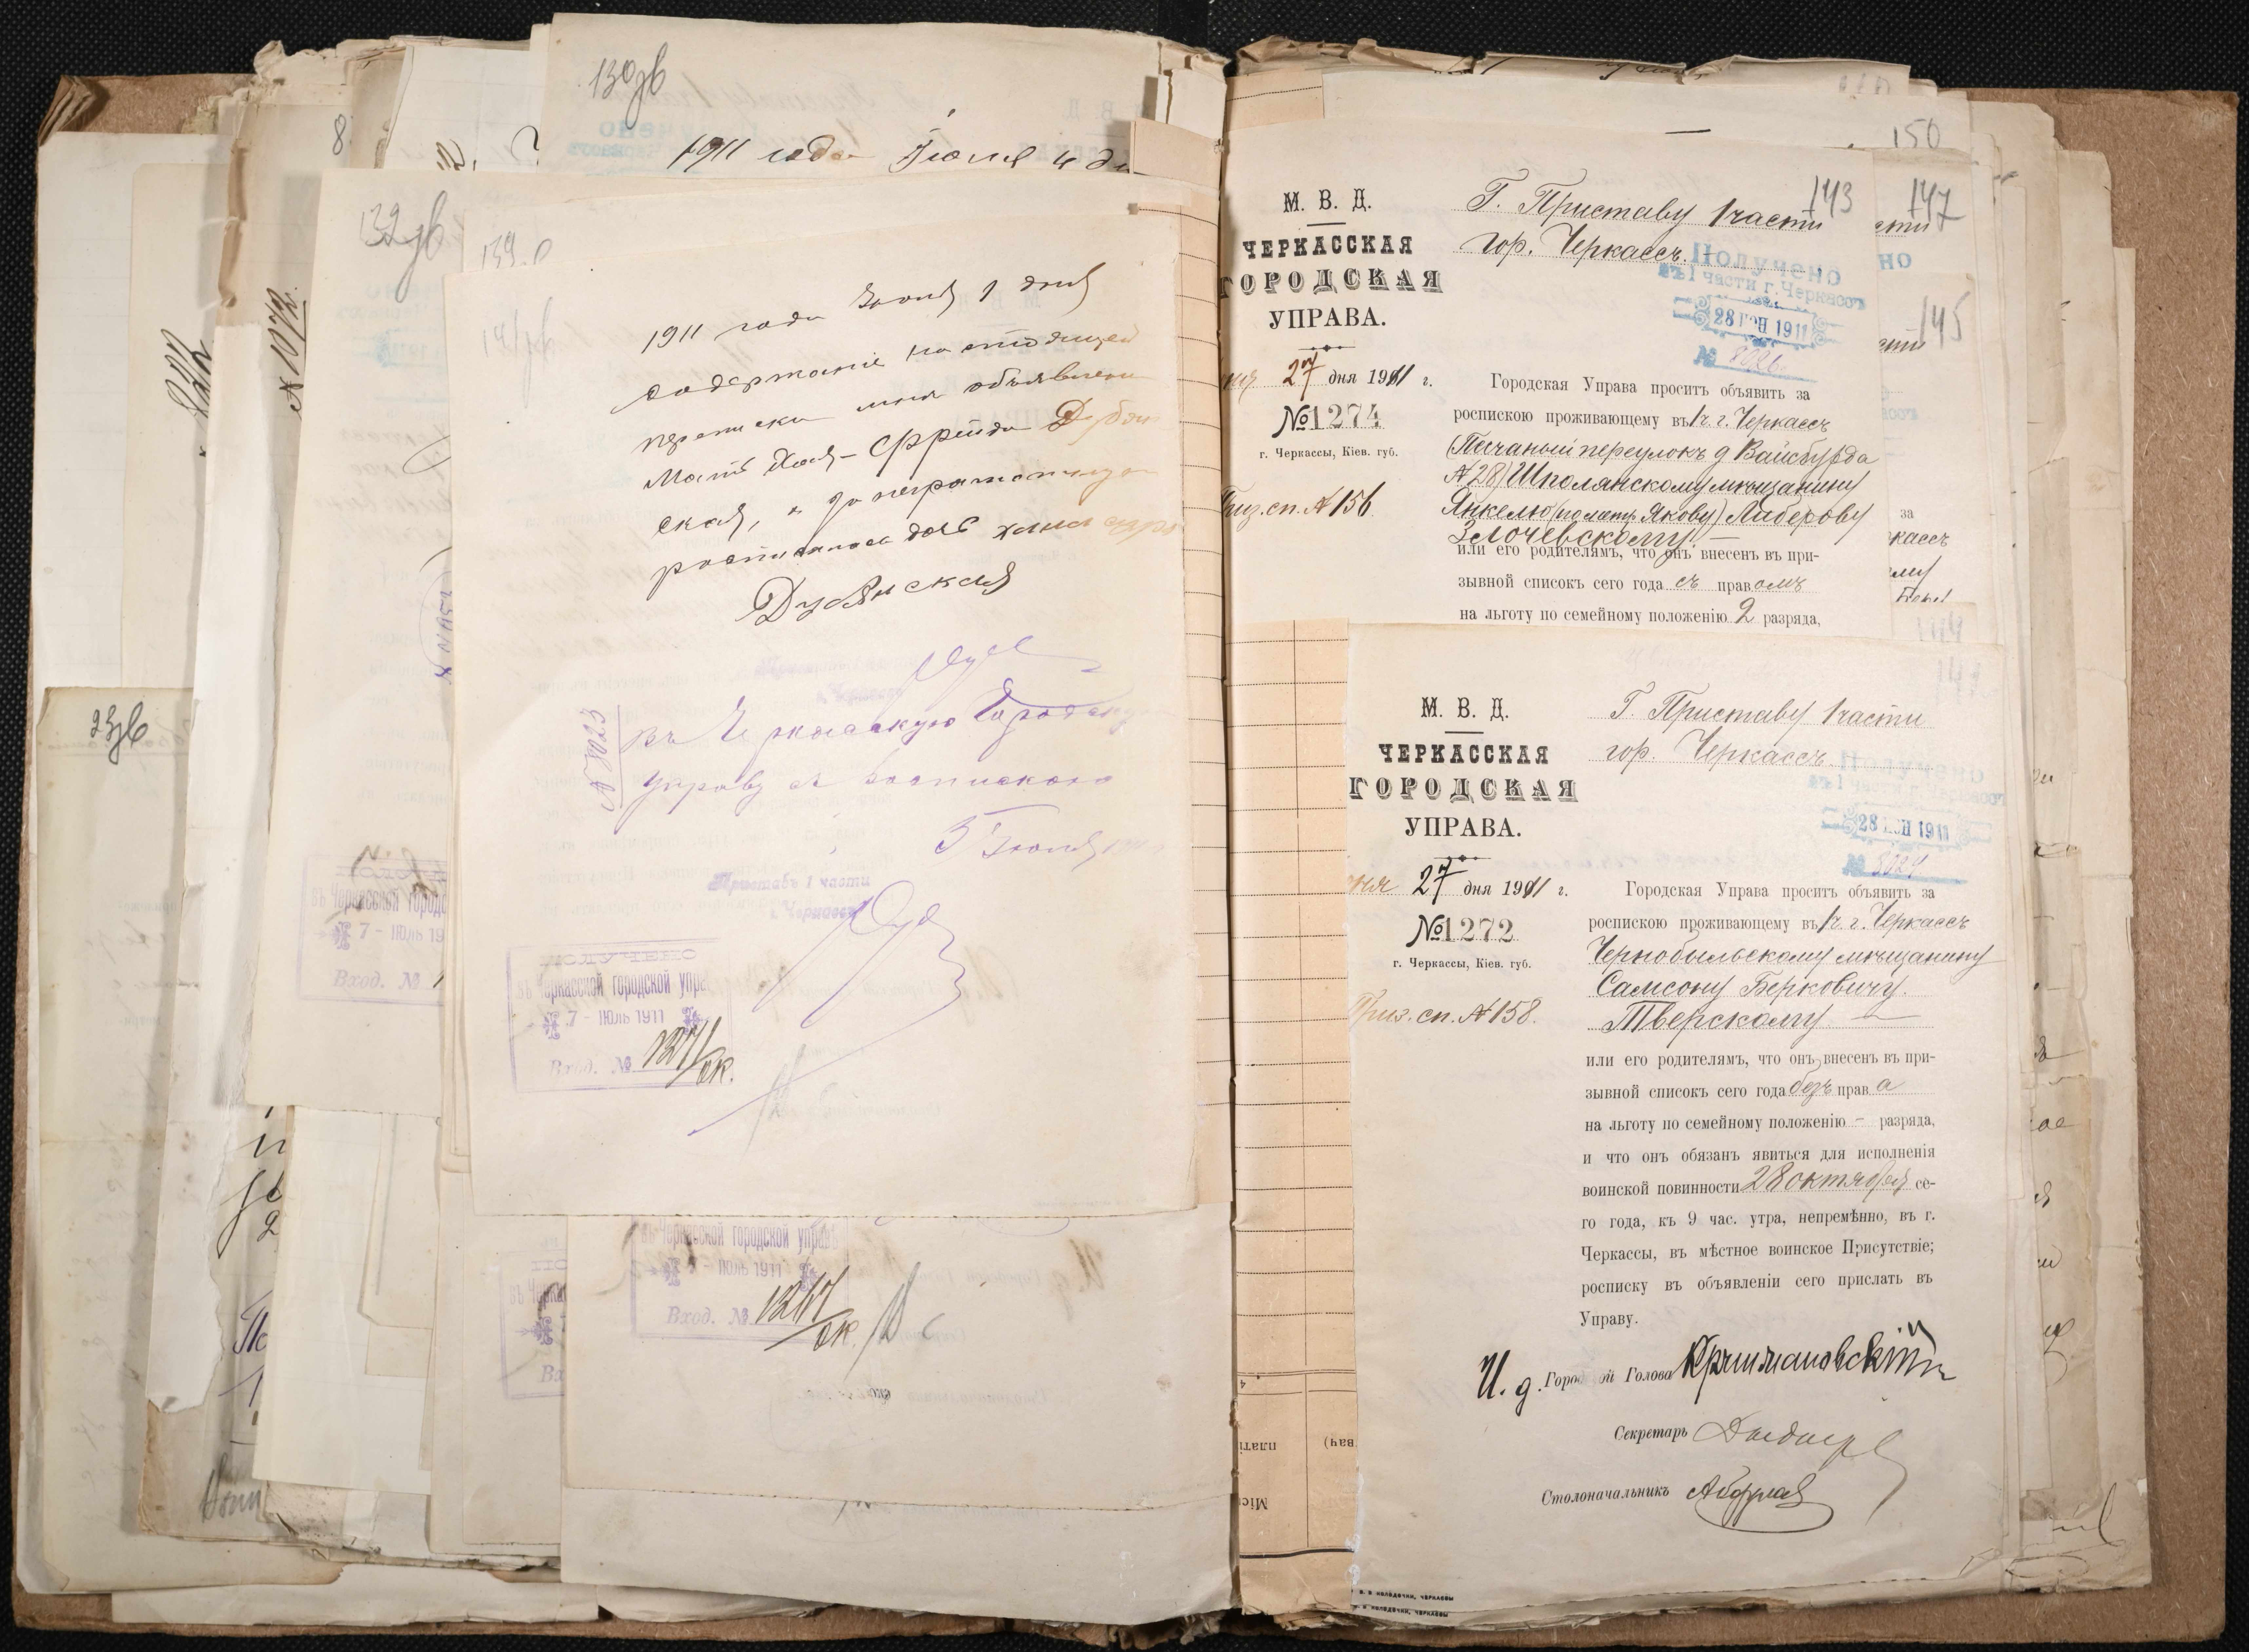 130зв
1911 года Іюля 4 дн
132зв
8
№ 1072.
23зв
139.
141зв
1911 года Іюля 1 дня
содержаніе настоящей
переписки мнѣ объявлено
Мать Хая-Фрейда Дубян
ская, а за неграмотную
росписалась дочь
Дубянская
№ 8023
въ Черкасскую Городскую
управу съ роспискою
5 Іюля
Приставъ 1 части
г. Черкассъ
ПОЛУЧЕНО
въ Черкасской городской упра
7 - ІЮЛЬ 1911
Вход. № 1271/ок.
въ Черкасской городс
7 - ІЮЛЬ 19
Вход. № 1
въ Черкасской городской управѣ
- ІЮЛЬ 1911
Вход. № 1267/ок.
150
147
145
143
М. В. Д.
ЧЕРКАССКАЯ
ГОРОДСКАЯ
УПРАВА.
27 дня 1911 г.
№ 1274
г. Черкассы, Кіев. губ.
Приз. сп. № 156
Г. Приставу 1 части
гор. Черкассъ.
Получено
въ 1 части г. Черкассъ
28 ІЮН 1911
№ 8026
Городская Управа проситъ объявить за
роспискою проживающему въ 1 ч. г. Черкассъ
(Песчаный переулокъ д Вайсбурда
№ 28) Шполянскому мѣщанину
Янкелю (по метр. Якову) Либерову
Злочевскому
или его родителямъ, что онъ внесенъ въ при-
зывной списокъ сего года съ правомъ
на льготу по семейному положенію 2 разряда,
144
М. В. Д.
ЧЕРКАССКАЯ
ГОРОДСКАЯ
УПРАВА.
27 дня 1911 г.
№ 1272
г. Черкассы, Кіев. губ.
Приз. сп. № 158.
Г. Приставу 1 части
гор. Черкассъ.
Получено
28 ІЮН 1911
№ 8024
Городская Управа проситъ объявить за
роспискою проживающему въ 1 ч. г. Черкассъ
Чернобыльскому мѣщанину
Самсону Берковичу
Тверскому
или его родителямъ, что онъ внесенъ въ при-
зывной списокъ сего года безъ права
на льготу по семейному положенію - разряда,
и что онъ обязанъ явиться для исполненія
воинской повинности 28 октября се-
го года, къ 9 час. утра, непремѣнно, въ г.
Черкассы, въ мѣстное воинское Присутствіе;
росписку въ объявленіи сего прислать въ
Управу.
И. д. Городской Голова
Секретарь
Столоначальникъ